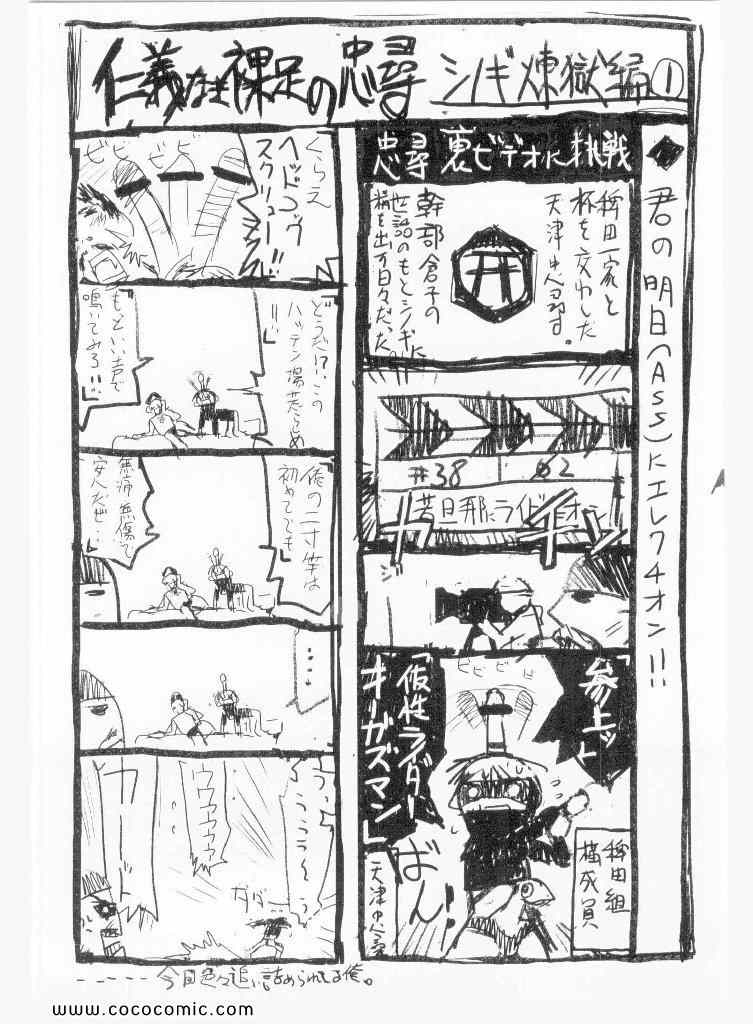 仁義なき裸足の忠尋 シノギ煉獄編①
◆君の明日(ASS)にエレクチオン!!
忠尋裏ビデオに挑戦
稗田一家と
杯を交わした
天津忠尋。
幹部倉子の
世話のもとシノギに
精を出す日々だった。
#38
02
若旦那にライドオン
ガチン
ジー
「参上ッ」
「仮性ライダー
オーガズマン」
ビビビ!!
ばん!
稗田組
構成員
天津忠尋
くらえ
ヘッドコック
スクリュー!!
ビビ ビビ
どうだ!?この
ハッテン場荒らしめ
もっといい声で
鳴いてみろ!!
俺の一寸竿は
初めてでも
無痛無傷で
安心だぜ…
‥‥
ううっ
うううう
ウワァァァ
ガバ
-----今回色々追い詰められてる俺。
www.cococomic.com